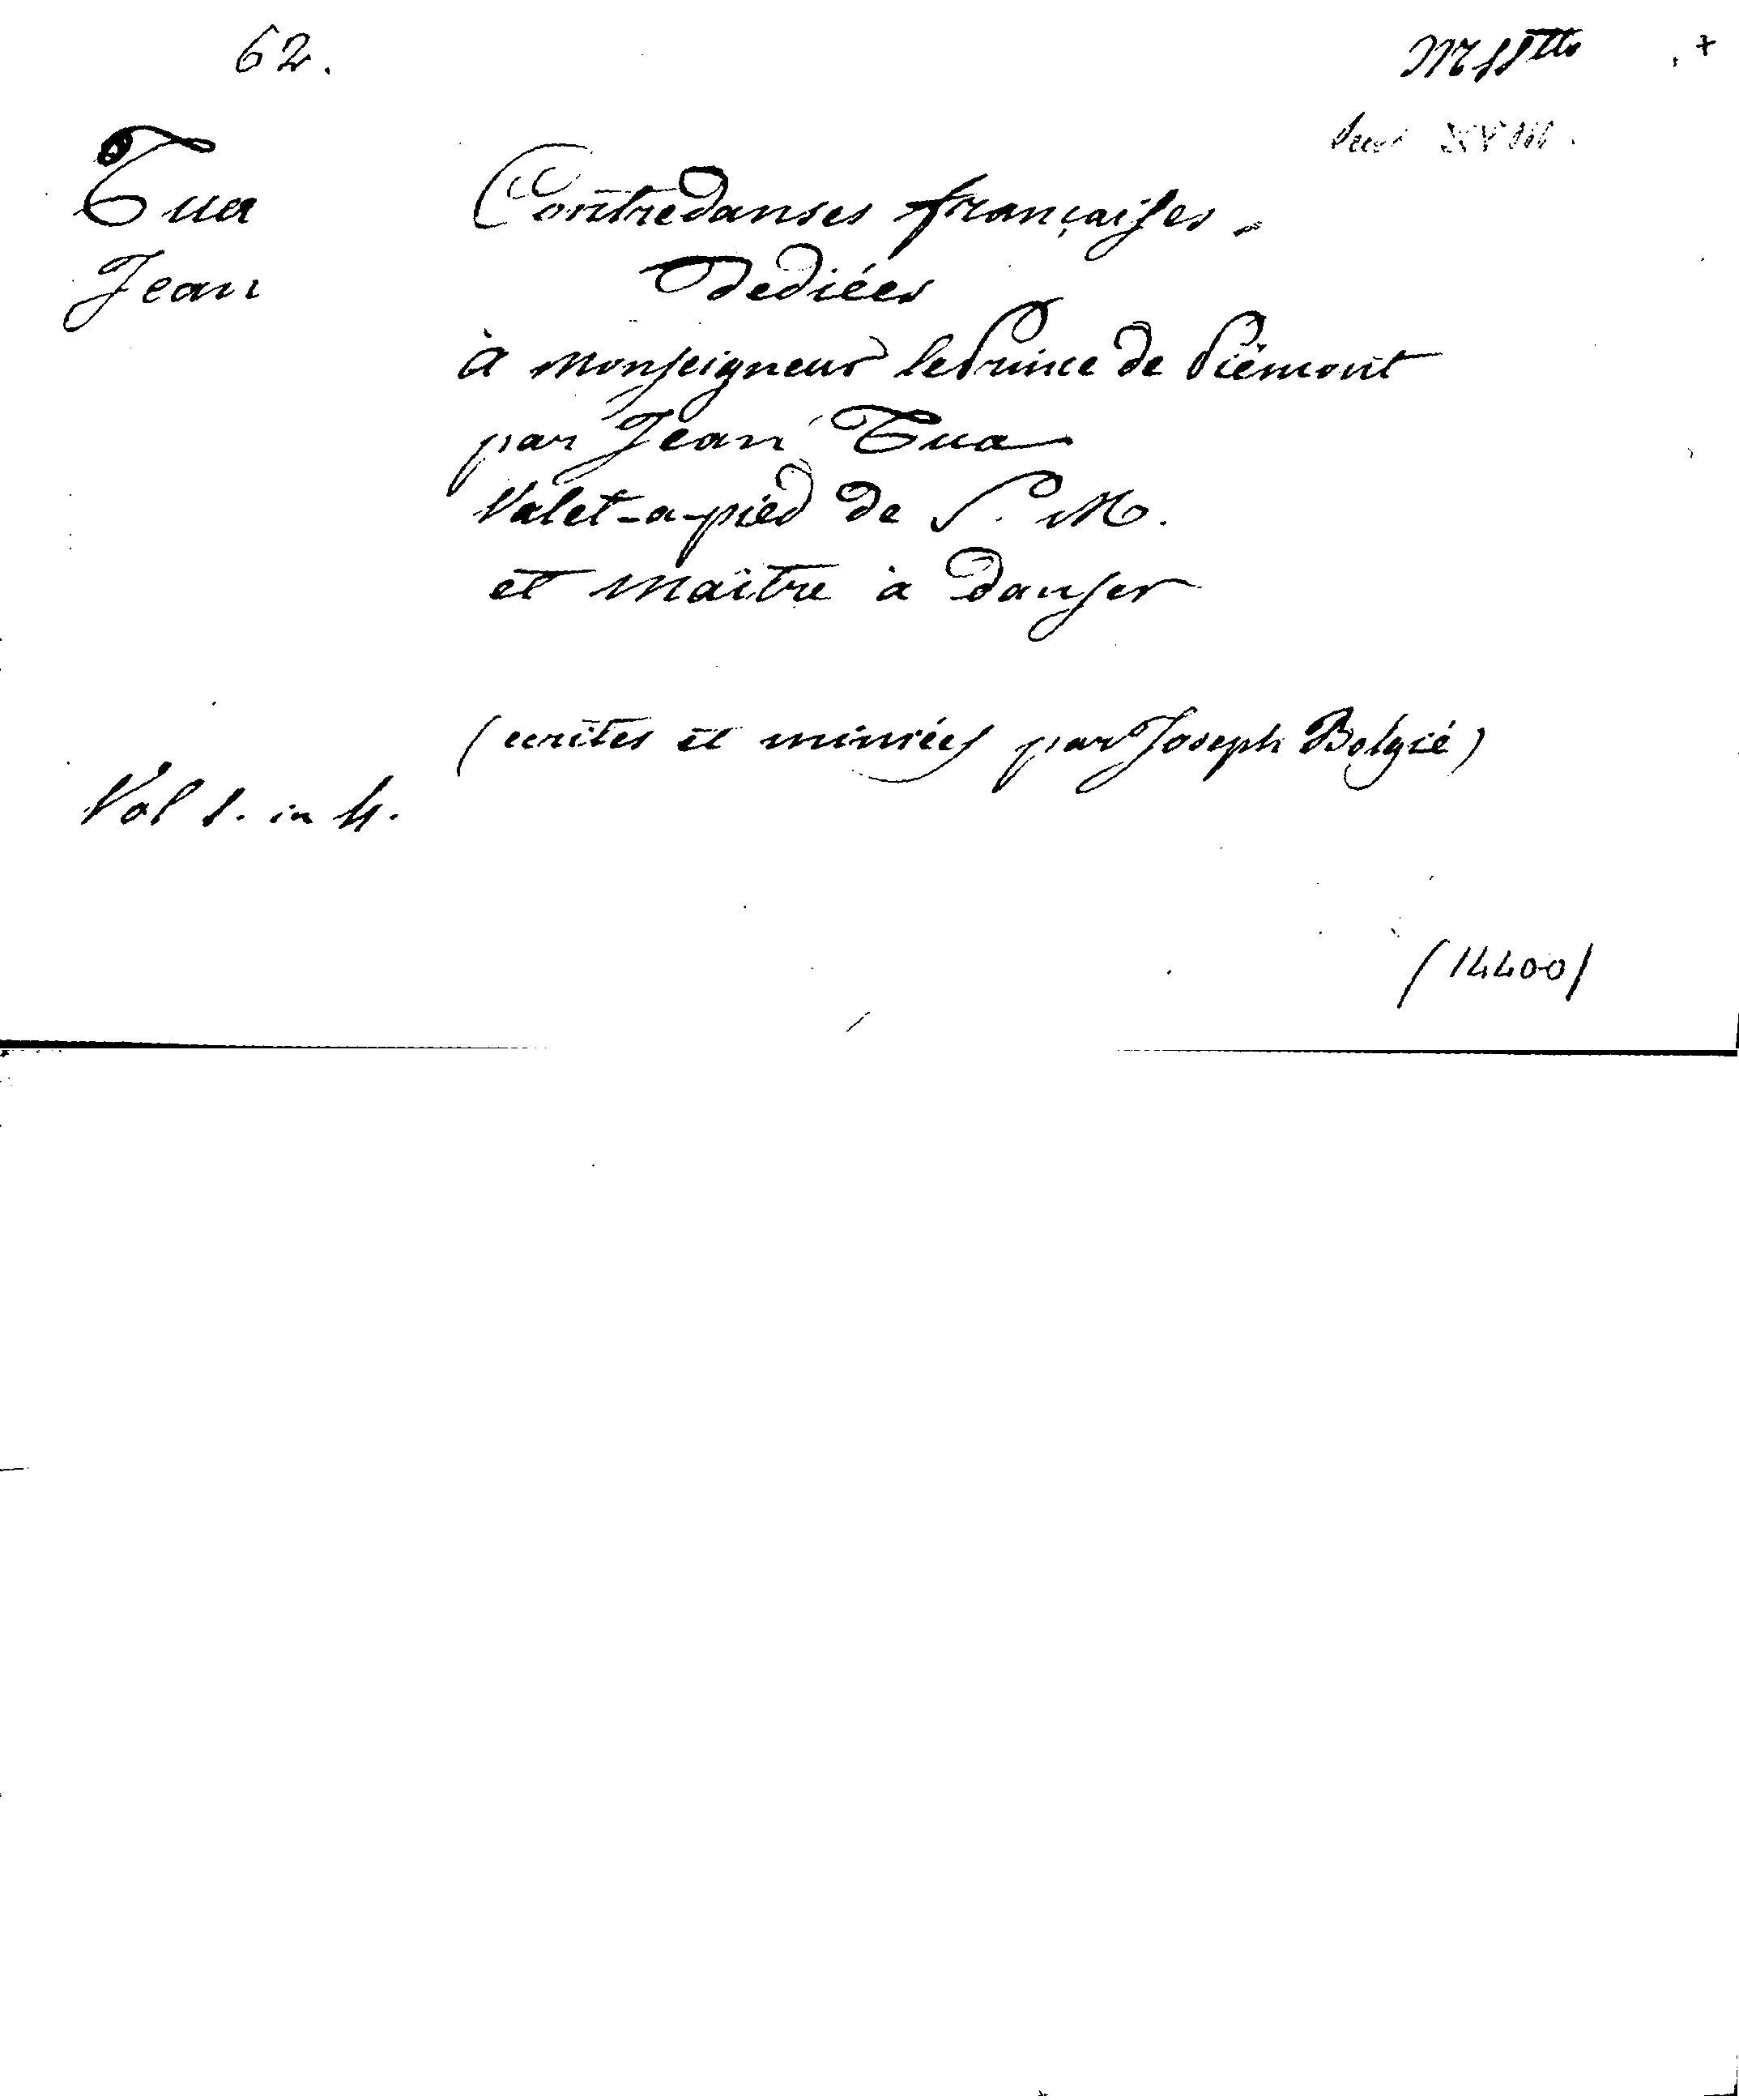 62.
MSStto
Sec. XVIII.
Tua
Jean
Contredanses françaises.
Dediées
à Monseigneur le Prince de Piémont
par Jean Tua
Valet-a-pied de S. M.
et maître à danser
(ecrites et miniées par Joseph Bolgié)
Vol 1. in 4.
(14400)